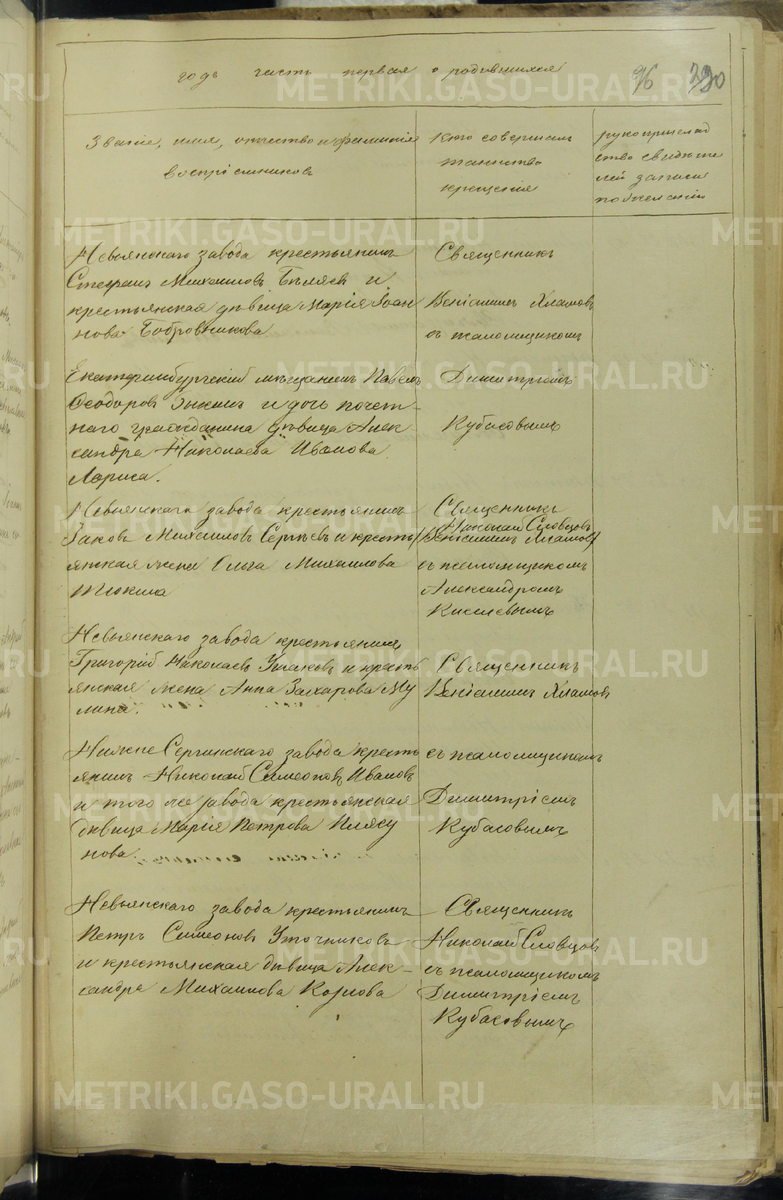 годъ часть первая о родившихся
96 290
Званіе, имя, отчество и фамилія
воспріемниковъ
Кто совершалъ
таинство
крещенія
рукоприклад
ство свидѣте
лей записи
по желанію
Невьянскаго завода крестьянинъ
Стефанъ Михаиловъ Бѣляевъ и
крестьянская дѣвица Марія Іоан
нова Бобровникова
Священникъ
Веніаминъ Хламовъ
съ псаломщикомъ
Екатеринбургскій мѣщанинъ Павелъ
Ѳеодоровъ и дочь почет-
наго гражданина дѣвица Алек-
сандра Николаева Иванова
Лариса.
Димитріемъ
Кубасовымъ
Невьянскаго завода крестьянинъ
Іаковъ Михаиловъ Сергѣевъ и кресть
янская жена Ольга Михаилова
Тюкина
Священникъ
Николай Словцовъ
Веніаминъ Хламовъ
съ псаломщикомъ
Александромъ
Киселевымъ
Невьянскаго завода крестьянинъ
Григорій Николаевъ Ушаковъ и кресть
янская жена Анна Захарова Му
лина.
Священникъ
Веніаминъ Хламовъ
Нижне Сергинскаго завода кресть
янинъ Николай Симеоновъ Ивановъ
и того же завода крестьянская
дѣвица Марія Петрова Плясу
нова
съ псаломщикомъ
Димитріемъ
Кубасовымъ
Невьянскаго завода крестьянинъ
Петръ Симеоновъ Уточниковъ
и крестьянская дѣвица Алек-
сандра Михаилова Корлова
Священникъ
Николай Словцовъ
съ псаломщикомъ
Димитріемъ
Кубасовымъ
METRIKI.GASO-URAL.RU